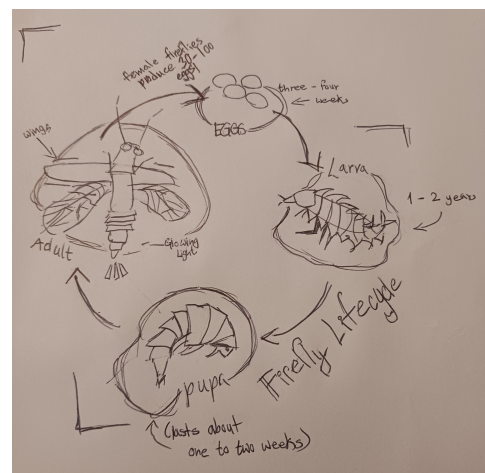 female fireflies
produce 30-100
eggs!
EGGS
three-four
weeks
wings
Larva
1-2 years
Adult
Glowing
light
Firefly Lifecycle
pupa
(lasts about
one to two weeks)